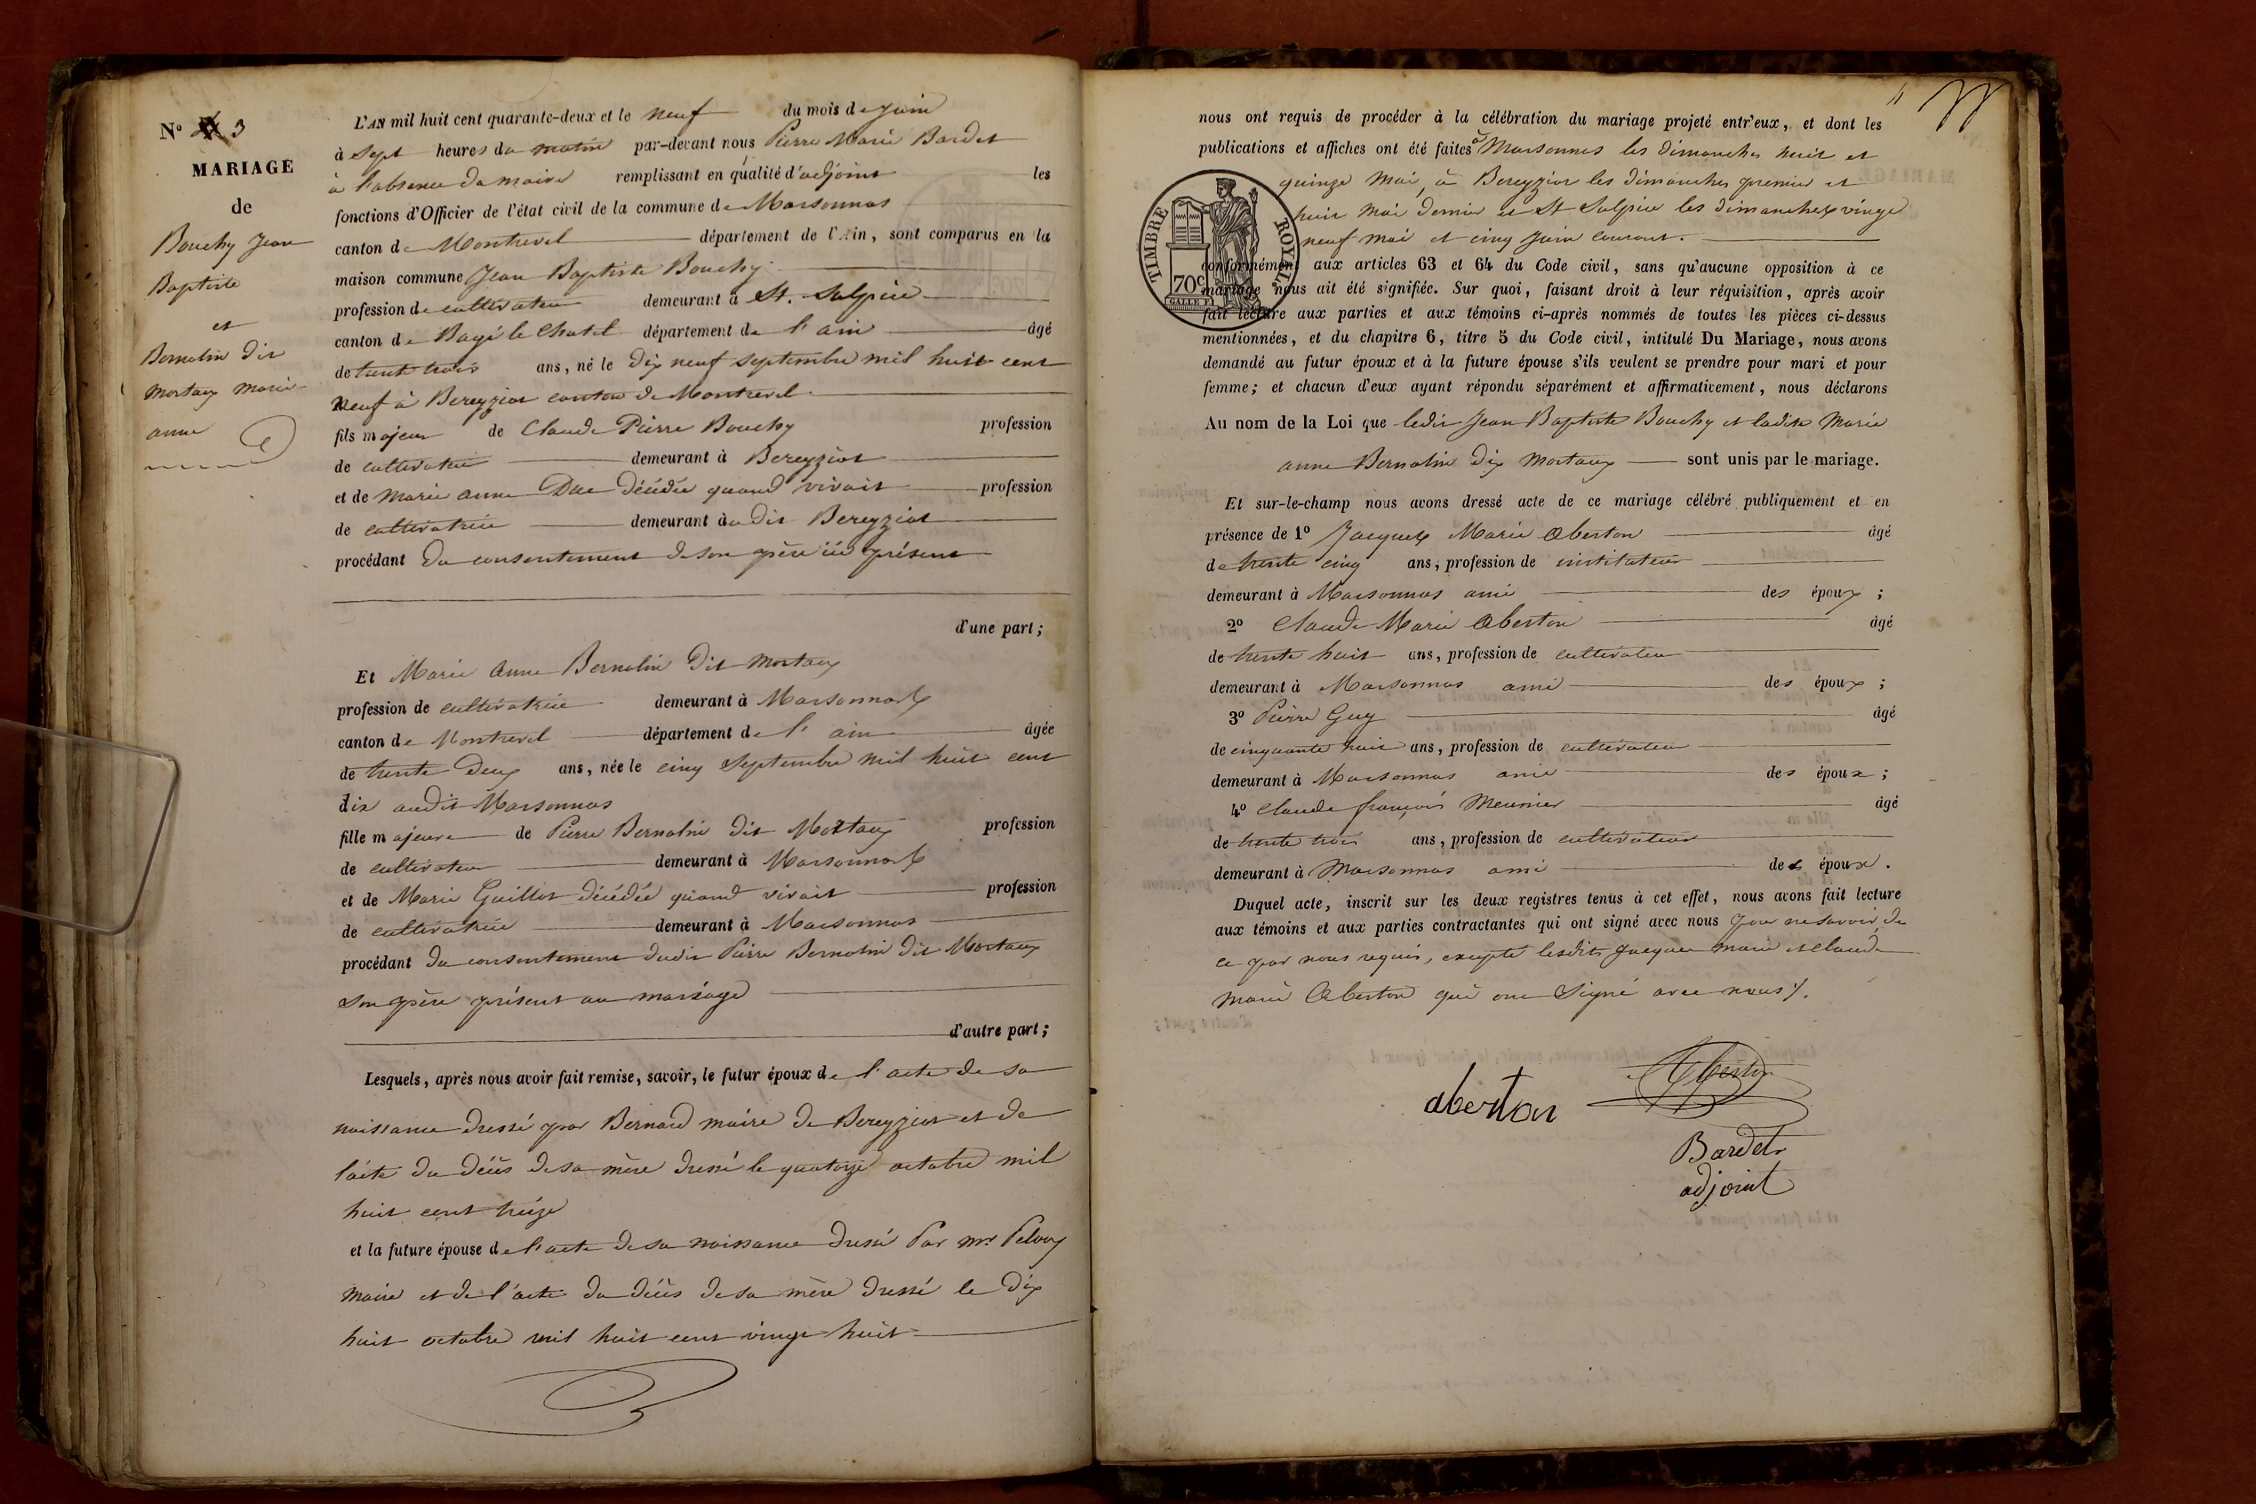 N° 3
MARIAGE
de
Bouchy Jean
Baptiste
et
Bernolin dit
mortaux marie
anne
L'AN mil huit cent quarante-deux et le neuf du mois de juin
à sept heures du matin par-devant nous Pierre Marie Bardet
à l'absence du maire remplissant en qualité d'adjoint les
fonctions d'Officier de l'état civil de la commune de Marsonnas
canton de Montrevel département de l'Ain, sont comparus en la
maison commune Jean Baptiste Bouchy
profession de cultivateur demeurant à St. Sulpice
canton de Bagé le Chatel département de l'ain âgé
de trente trois ans, né le dix neuf septembre mil huit cent
neuf à Bereyziat canton de Montrevel
fils majeur de Claude Pierre Bouchy profession
de cultivateur demeurant à Bereyziat
et de Marie anne Duc décédée quand vivait profession
de cultivatrice demeurant audit Bereyziat
procédant du consentement de son père ici présent
d'une part;
Et Marie Anne Bernolin dit mortaux
profession de cultivatrice demeurant à Marsonnas
canton de Montrevel département de l'ain âgée
de trente deux ans, née le cinq Septembre mil huit cent
dix audit Marsonnas
fille majeure de Pierre Bernolin dit Mortaux profession
de cultivateur demeurant à Marsonnas
et de Marie Guillot décédée quand vivait profession
de cultivatrice demeurant à Marsonnas
procédant du consentement dudit Pierre Bernolin dit Mortaux
son père présent au mariage
d'autre part;
Lesquels, après nous avoir fait remise, savoir, le futur époux de l'acte de sa
naissance dressé par Bernard maire de Bereyziat et de
l'acte du décès de sa mère dressé le quatorze octobre mil
huit cent treize
et la future épouse de l'acte de sa naissance dressé Par mr
maire et de l'acte du décès de sa mère dressé le dix
huit octobre mil huit cent vingt huit
nous ont requis de procéder à la célébration du mariage projeté entr'eux, et dont les
publications et affiches ont été faites à Marsonnas les dimanches huit et
quinze Mai, à Bereyziat les dimanches premier et
huit Mai dernier et St Sulpice les dimanches vingt
neuf mai et cinq juin courant.
TIMBRE ROYAL
70c
conformément aux articles 63 et 64 du Code civil, sans qu'aucune opposition à ce
mariage nous ait été signifiée. Sur quoi, faisant droit à leur réquisition, après avoir
fait lecture aux parties et aux témoins ci-après nommés de toutes les pièces ci-dessus
mentionnées, et du chapitre 6, titre 5 du Code civil, intitulé Du Mariage, nous avons
demandé au futur époux et à la future épouse s'ils veulent se prendre pour mari et pour
femme; et chacun d'eux ayant répondu séparément et affirmativement, nous déclarons
Au nom de la Loi que ledit Jean Baptiste Bouchy et ladite Marie
anne Bernolin dix Mortaux sont unis par le mariage.
Et sur-le-champ nous avons dressé acte de ce mariage célébré publiquement et en
présence de 1° Jacques Marie Aberton âgé
de trente cinq ans, profession de instituteur
demeurant à Marsonnas ami des époux;
2° Claude Marie Aberton âgé
de trente huit ans, profession de cultivateur
demeurant à Marsonnas ami des époux;
3° Pierre Guy âgé
de cinquante huit ans, profession de cultivateur
demeurant à Marsonnas ami des époux;
4° Claude françois Meunier âgé
de trente trois ans, profession de cultivateur
demeurant à Marsonnas ami des époux.
Duquel acte, inscrit sur les deux registres tenus à cet effet, nous avons fait lecture
aux témoins et aux parties contractantes qui ont signé avec nous pour ne savoir, de
ce par nous requis, excepté lesdits Jacques Marie et Claude
Marie Aberton qui ont Signé avec nous ./.
aberton
Aberton
Bardet
adjoint